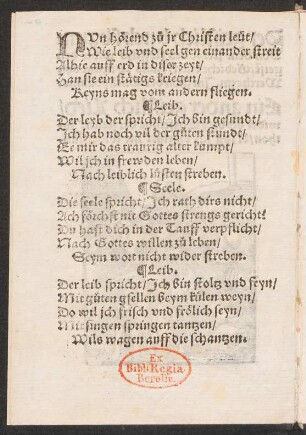 NVn hörend zů jr Christen leüt/
Wie leib vnd seel gen einander streit
Alhie auff erd in diser zeyt/
Han sie ein stätigs kriegen/
Keyns mag vom andern fliegen.
¶Leib.
Der leyb der spricht/ Jch bin gesundt/
Jch hab noch vil der gůten stundt/
Ee mir das traurig alter kumpt/
Wil jch in frewden leben/
Nach leiblich lüsten streben.
¶Seele.
Die seele spricht/ Jch rath dirs nicht/
Ach förchst nit Gottes strengs gericht?
Du hast dich in der Tauff verpflicht/
Nach Gottes willen zů leben/
Seym wort nicht wider streben.
¶Leib.
Der leib spricht/ Jch bin stoltz vnd feyn/
Mit gůten gsellen beym külen weyn/
Do wil jch frisch vnd frölich seyn/
Mit singen springen tantzen/
Wils wagen auff die schantzen.
Ex
Bibl. Regia
Berolin.